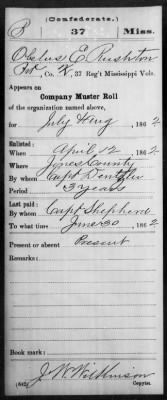 (Confederate.)
R 37 Miss.
E. Rushton
Pvt, Co. K, 37 Reg't Mississippi Vols.
Appears on
Company Muster Roll
of the organization named above,
for July & Aug, 1862
Enlisted:
When April 12, 1862
Where Jones County
By whom Capt
Period 3 years
Last paid:
By whom Capt Shepherd
To what time June 30, 1862
Present or absent Present
Remarks:
Book mark:
J. W. Wilkinson
(642) Copyist.